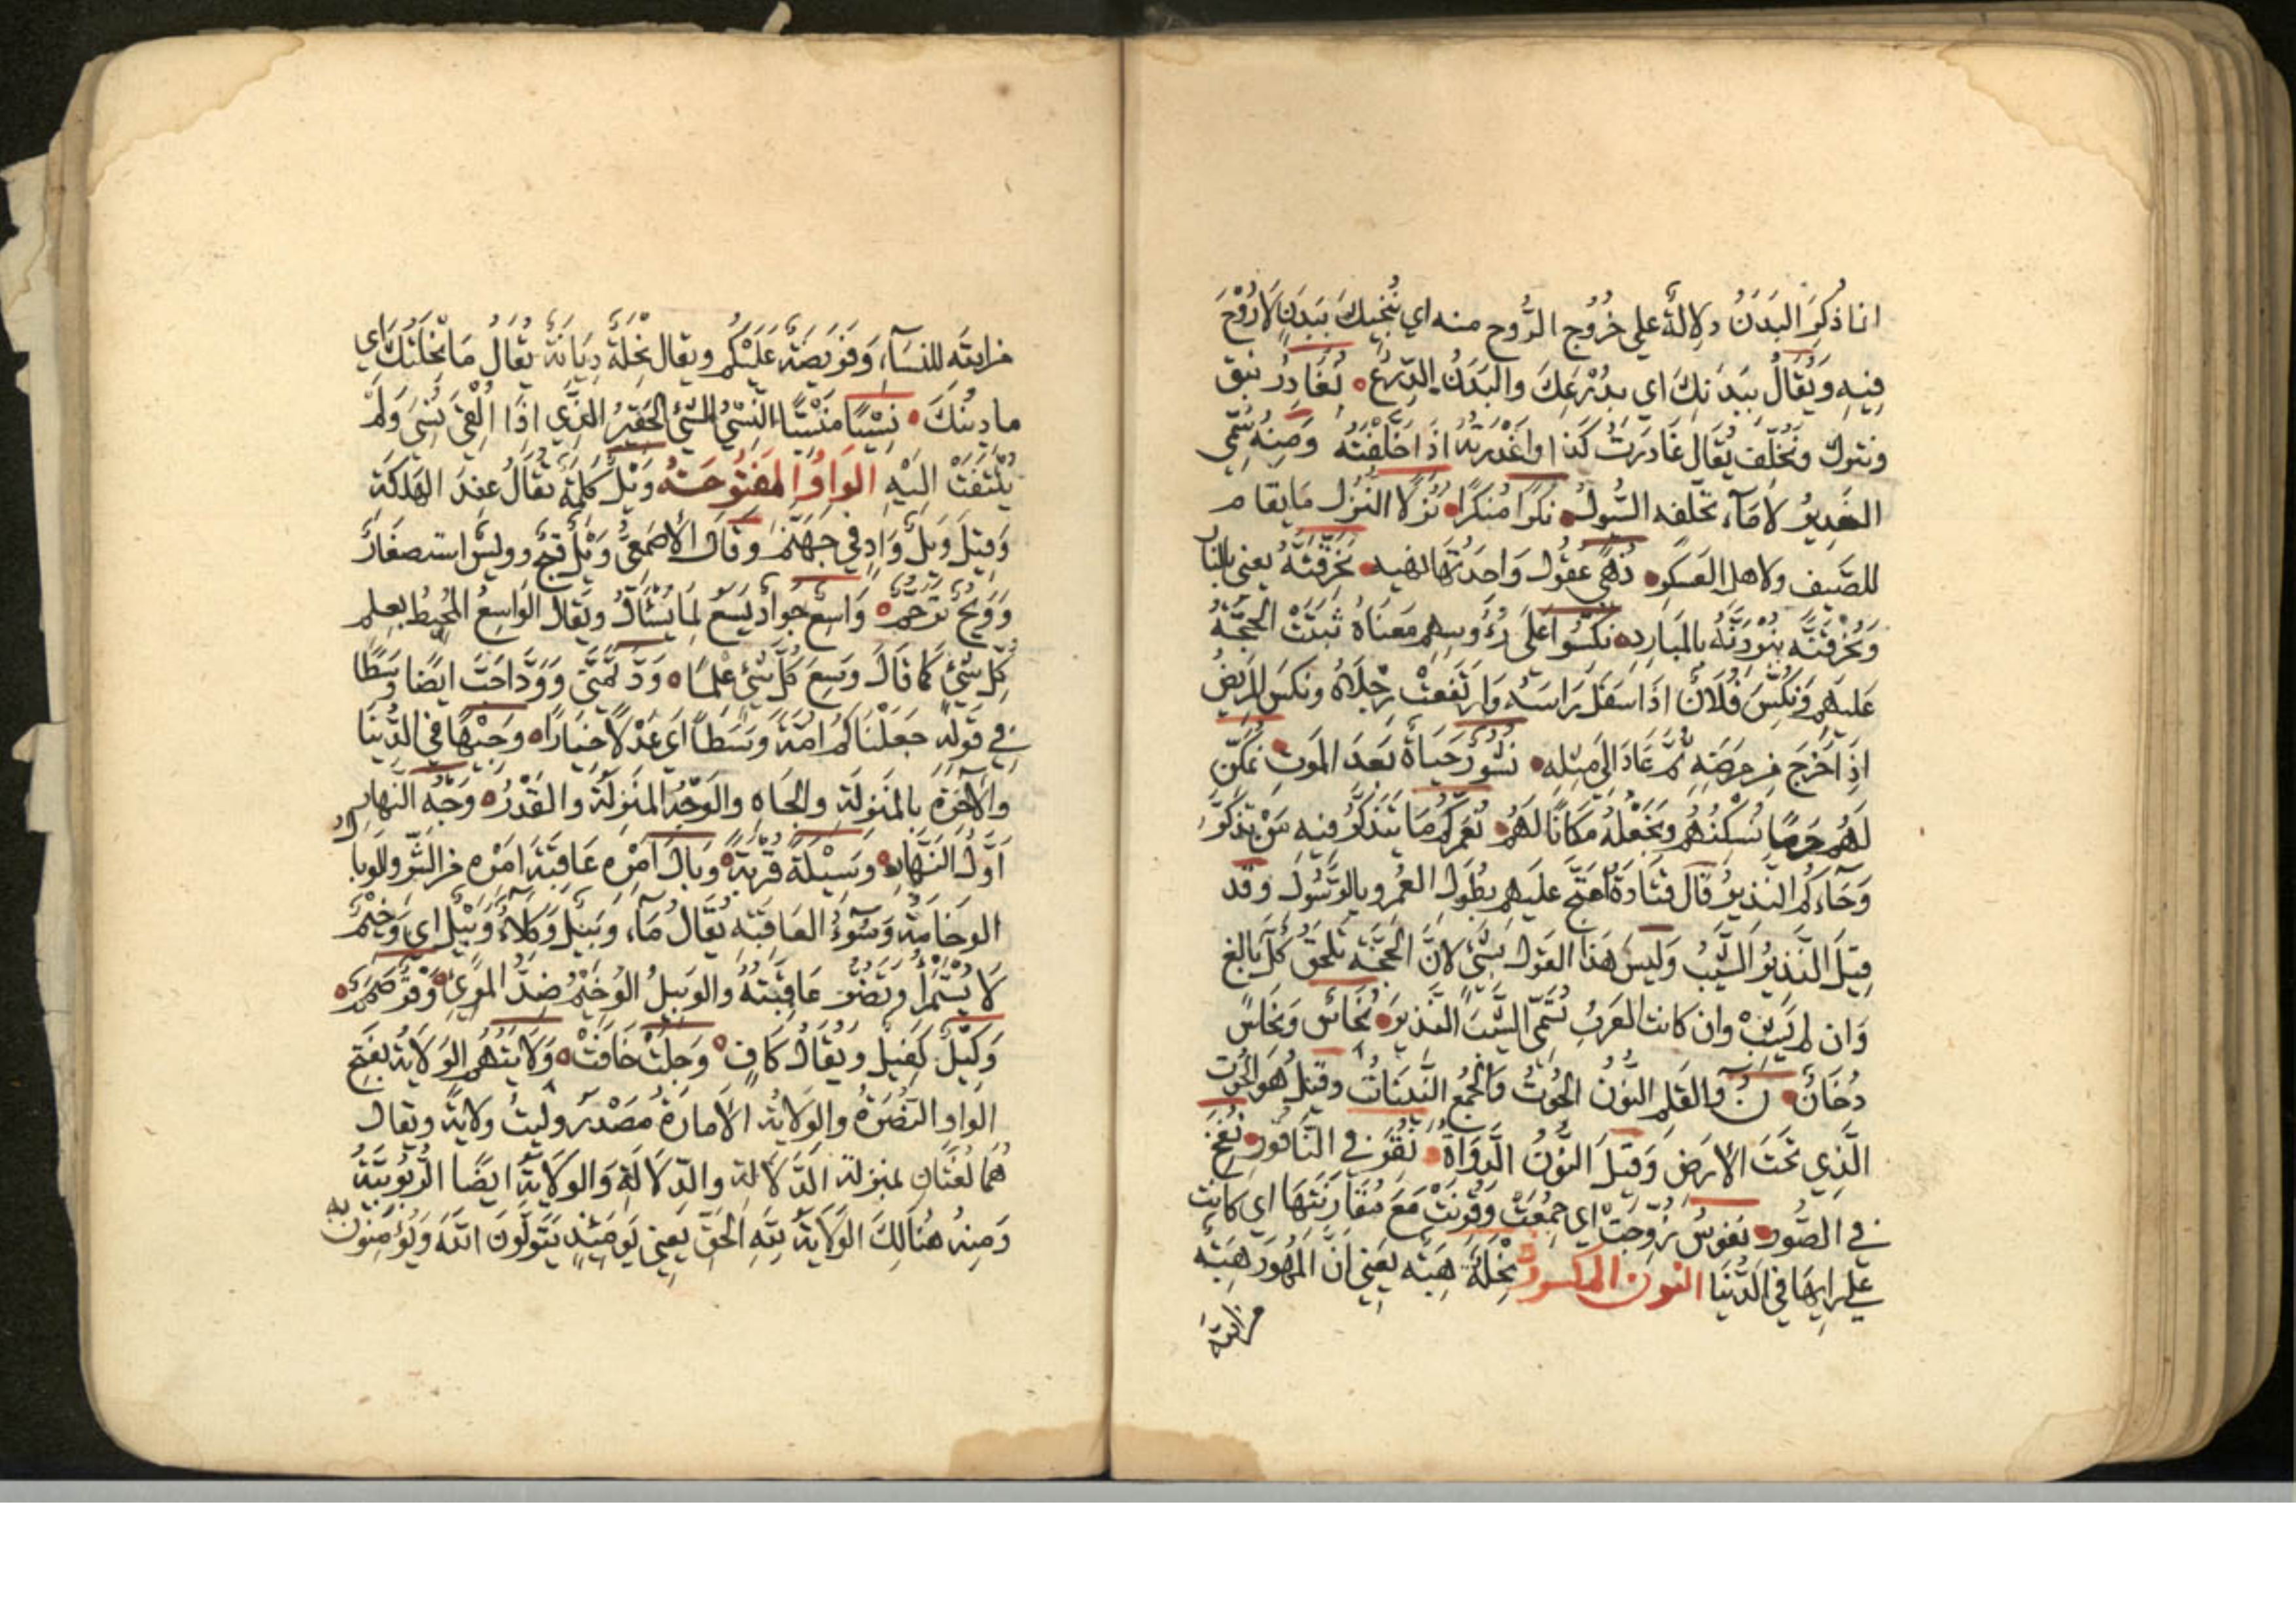 انما ذكر البَدَنُ دلالةً على خُرُوج الرُّوح منه اي نُنجيكَ ببَدَنٍ لا رُوْحَ
فيهِ ويُقالُ ببَدَنِكَ اي بدُرْعِكَ والبَدَنُ الدِّرعُ نُغادِرْ نبق
ونترك ونُخَلّف يُقال غَادَرَتُ كذا واَغْدَرتهُ اذَا خَلَّفْتَهُ وَمِنهُ سُمِّى
الغَديرُ لاَ مَآءٌ تخلّفه السُّيولُ نُكرًا مُنكَرًا نُزلًا النُزُل مَا يقام
للضَّيف ولاهل العَسكرِ نُهًى عقُول وَاحدَتُهَا نُهيه نُحَرِّقَنَّهُ يعنى بالنار
وَنَحْرُقَنَّه بنُردَنَّهُ بالمَبارِد نُكِسُوا عَلَى رُؤُوسِهِم مَعناهُ ثبتَتْ الحجَّةُ
عَليهم ونُكِسَ فُلاَنٌ اذَا سَفلَ رَاسَهُ وَارتَفَعتْ رِجْلَاهُ ونُكسَ المريضُ
اذا خرَجَ من مرَضِه ثمَّ عَادَ الى مِثلِه نُشُورٌ حَيَاةٌ بَعدَ المَوتِ نُمَكِّن
لَهُم حَرمًا نُسكنهُم ونَجْعَلْهُ مَكانًا لَهُم نُعَمِّركُم مَا يَتَذكَّرُ فيه مَنْ تذكّرَ
وَجَآءكُم النَّذِيرُ قالَ قَتَادةُ احتجَّ عليهم بطُولِ العُمُر وبالرَّسُول وقد
قِيلَ النَّذيرُ الشَّيْبُ وَليسَ هَذا القول بشئٍ لانَّ الحُجَّة تلحَقُ كُلَّ بالغ
وَان لم يَشِبْ وان كانت العرَبُ تُسَمّى الشَّيبَ النذيرَ نُحَاسٌ ونِحَاسٌ
دُخَانٌ نٓ والقلم النُّونُ الحُوتُ والجمعُ النِّينَانُ وقيلَ هو الحُوت
الَّذِي تحَتَ الاَرضِ وَقيلَ النُّونُ الدَّوَاةُ نُقِرَ في النَّاقُورِ نُفِخَ
في الصُّور نفوسٌ زُوِّجَتْ اي جمُعَتْ وقُرنتْ مَعَ مُقَارَنَتهَا اي كانت
على رايها في الدُّنيَا النون المكسورة نِحْلَةً هِبَةً يَعنى اَنَّ المُهُورَ هِبَةٌ
من الله
من الله للنسآء وَفريضَةٌ عَلَيْكُم ويقال نحْلَةً دِيَانَةً يُقالُ مَا نِحْلَتُكَ اي
مادينُكَ نِسْيًا مَنْسِيًّا النِسْيُ الشيُ الحَقِيرُ الَّذِي اذَا اُلْقِىَ نُسِىَ وَلَمْ
يُلتفَتْ اليْهِ الواو المفتوحَة وَيْلٌ كَلِمَةٌ تُقَالُ عِندَ الهَلكَةِ
وَقيلَ وَيلٌ وَادٍ في جهَنَّم وقَالَ الأَصْمَعىُّ وَيْلٌ قبحٌ وويسٌ استصغَارٌ
وَوَيحٌ تَرَحُّمٌ وَاسِعٌ جَوادٌ يَسَعُ لما يُسْأَلُ ويقال الوَاسِعُ المُحيطُ بعِلم
كُلّ شيْءٍ كَما قَالَ وَسِعَ كُلَّ شيْءٍ علمًا وَدَّ تمنَّى وَوَدَّ احَبَّ ايضًا وَسَطًا
في قَولِه جَعَلْنَاكُم امّةً وَسَطًا اَي عَدْلًا خيارًا وجيْهًا في الدُّنْيَا
والآخرَة بالمَنزِلَة والجَاهِ والوجْهُ المَنزِلَة والقَدْرُ وَجْهَ النَّهارِ
اَوَّلُ النَّهَارِ وَسِيْلَةً قُربَةً وَبَالَ اَمْرِهِ عَاقِبَةَ اَمْرِهِ من الشَّرِّ والوبال
الوخَامَةُ وَسُوْءُ العَاقِبَه يُقَالُ مَاءٌ وَبيلٌ وَكَلَأٌ وَبِيْلٌ اي وَخِيْمٌ
لاَ يُستَمْرَأُ وتَضُرُّ عَاقِبَتهُ والوبيلُ الوخيْمُ ضِدُّ المَرِىءِ وَقْرٌ صَمَمٌ
وَكيْلٌ كفيلٌ ويُقَالُ كَافٍ وَجِلَتْ خَافَتْ وَلَايَتُهُم الوَلاَيَةُ بفتح
الوَاو النُصْرَةُ والوِلَايَةُ الاَمَارَةُ مَصْدَرُ وَليتُ ولايَةً ويقال
هُمَا لُغتَانِ بمنزلةِ الدَّلاَلةِ والدِّلاَلَةِ وَالولاَيَةُ ايضًا الرُّبُوبيّةُ
وَمِنهُ هُنَالِكَ الوَلَايَةُ لِلّهِ الحَقِّ يَعنى يَومَئِذٍ يَتَولّوْنَ اللّهَ ويُؤمِنُون به